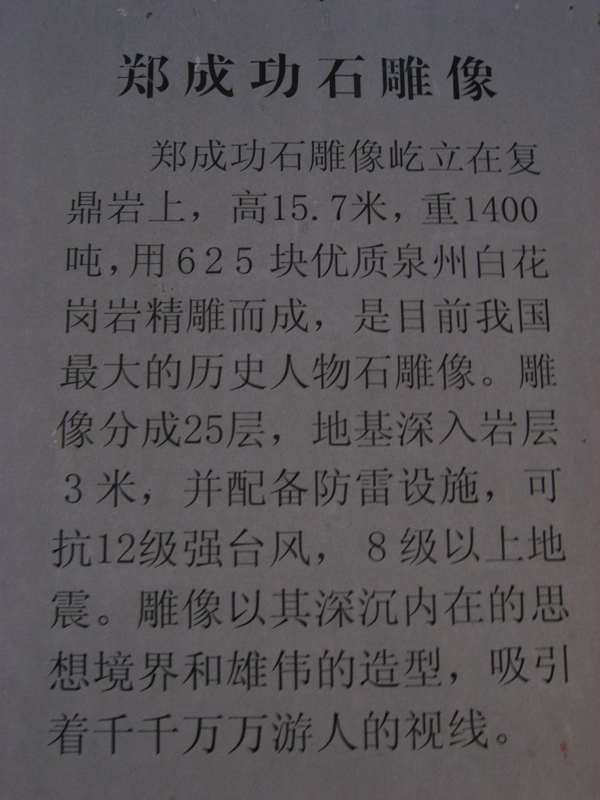 郑成功石雕像
郑成功石雕像屹立在复
鼎岩上，高15.7米，重1400
吨，用625块优质泉州白花
岗岩精雕而成，是目前我国
最大的历史人物石雕像。雕
像分成25层，地基深入岩层
3米，并配备防雷设施，可
抗12级强台风，8级以上地
震。雕像以其深沉内在的思
想境界和雄伟的造型，吸引
着千千万万游人的视线。